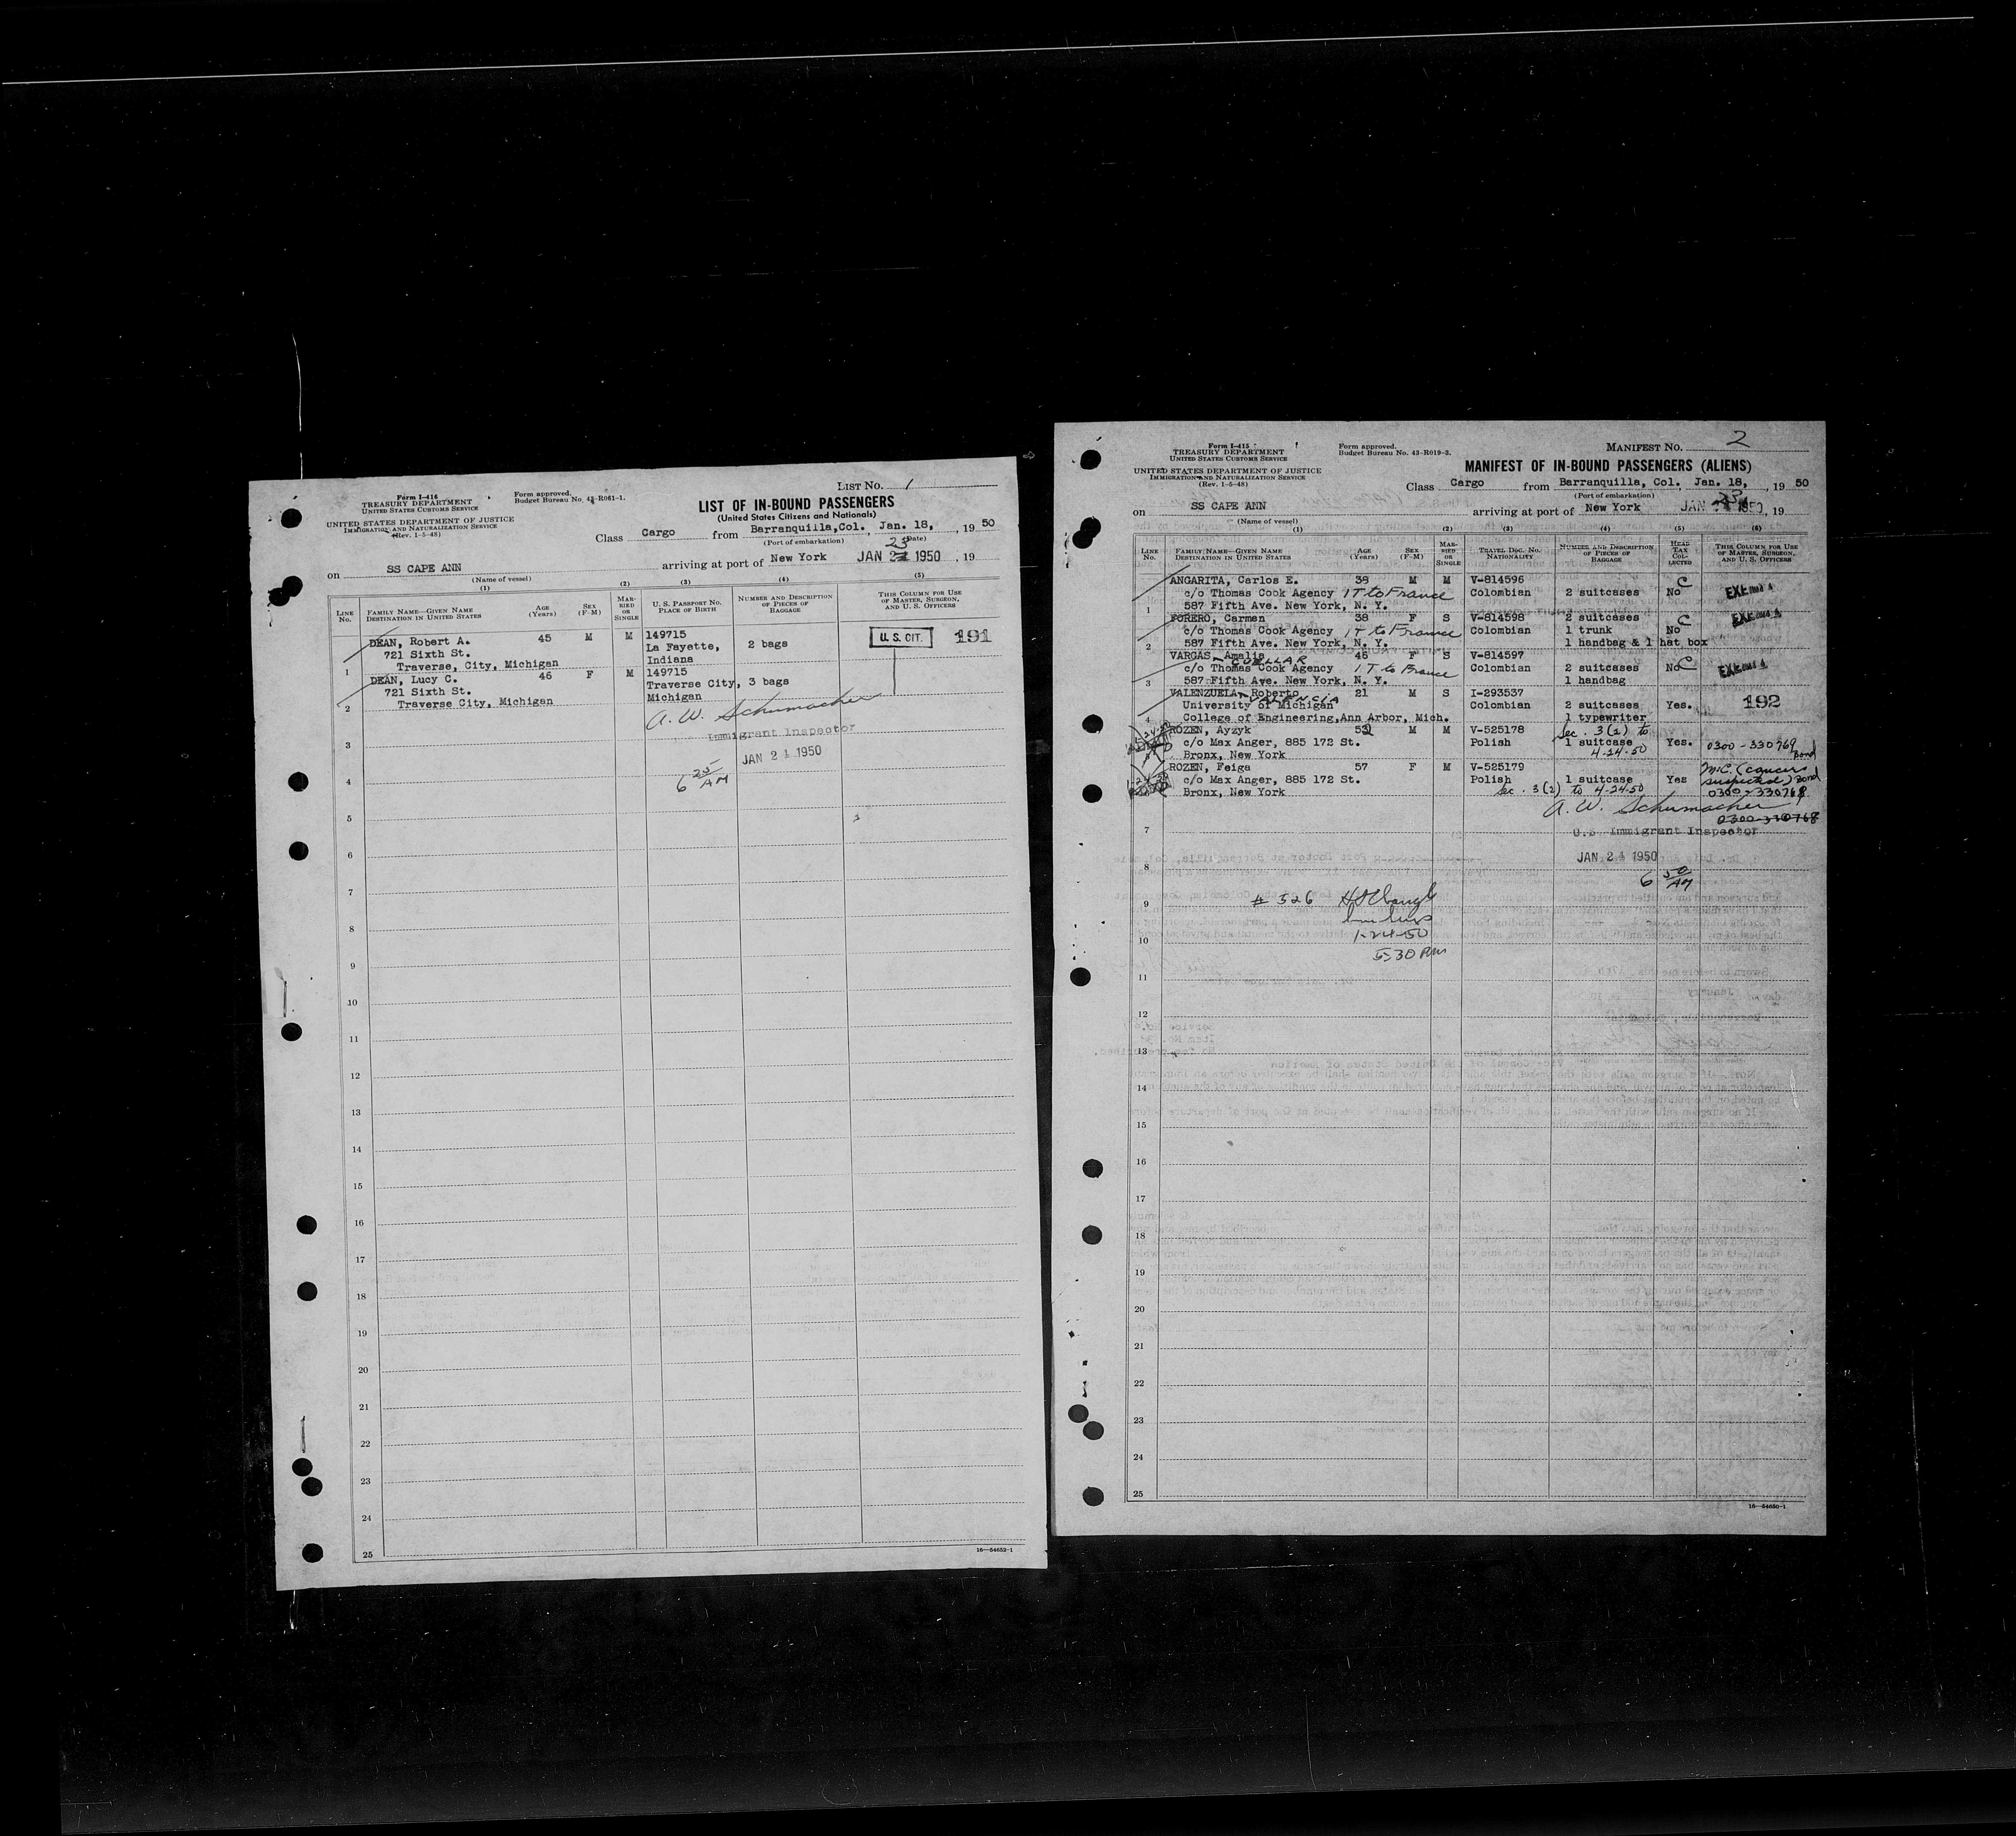 Form I-416
TREASURY DEPARTMENT
UNITED STATES CUSTOMS SERVICE
UNITED STATES DEPARTMENT OF JUSTICE
IMMIGRATION AND NATURALIZATION SERVICE
(Rev. 1-5-48)
Form approved.
Budget Bureau No. 43-R061-1.
LIST NO. 1
LIST OF IN-BOUND PASSENGERS
(United States Citizens and Nationals)
Class Cargo from Barranquilla,Col. Jan. 18, , 19 50
(Port of embarkation) (Date)
on SS CAPE ANN arriving at port of New York JAN 23 1950 , 19
(Name of vessel)
(1) (2) (3) (4) (5)
LINE No. FAMILY NAME—GIVEN NAME DESTINATION IN UNITED STATES AGE (Years) SEX (F-M) MARRIED OR SINGLE U. S. PASSPORT NO. PLACE OF BIRTH NUMBER AND DESCRIPTION OF PIECES OF BAGGAGE THIS COLUMN FOR USE OF MASTER, SURGEON, AND U. S. OFFICERS
DEAN, Robert A. 45 M M 149715 U. S. CIT. 191
721 Sixth St. La Fayette, 2 bags
1 Traverse, City, Michigan Indiana
DEAN, Lucy C. 46 F M 149715
721 Sixth St. Traverse City, 3 bags
2 Traverse City, Michigan Michigan
A. W. Schumacher
3 Immigrant Inspector
JAN 24 1950
4 6 25 AM
5
6
7
8
9
10
11
12
13
14
15
16
17
18
19
20
21
22
23
24
25
16—54652-1
Form I-415
TREASURY DEPARTMENT
UNITED STATES CUSTOMS SERVICE
UNITED STATES DEPARTMENT OF JUSTICE
IMMIGRATION AND NATURALIZATION SERVICE
(Rev. 1-5-48)
Form approved.
Budget Bureau No. 43-R019-2.
MANIFEST NO. 2
MANIFEST OF IN-BOUND PASSENGERS (ALIENS)
Class Cargo from Barranquilla, Col. Jan. 18, , 19 50
(Port of embarkation)
on SS CAPE ANN arriving at port of New York JAN 23 1950, 19
(Name of vessel)
(1) (2) (3) (4) (5) (6)
LINE No. FAMILY NAME—GIVEN NAME DESTINATION IN UNITED STATES AGE (Years) SEX (F-M) MARRIED OR SINGLE TRAVEL DOC. NO. NATIONALITY NUMBER AND DESCRIPTION OF PIECES OF BAGGAGE HEAD TAX COLLECTED THIS COLUMN FOR USE OF MASTER, SURGEON, AND U. S. OFFICERS
ANGARITA, Carlos E. 38 M M V-814596 C
c/o Thomas Cook Agency 1 T to France Colombian 2 suitcases No
1 587 Fifth Ave. New York, N. Y.
FORERO, Carmen 38 F S V-814598 2 suitcases C
c/o Thomas Cook Agency 1 T to France Colombian 1 trunk No
2 587 Fifth Ave. New York, N. Y. 1 handbag & 1 hat box
VARGAS, Amalia 46 F S V-814597
CUELLAR
c/o Thomas Cook Agency 1 T to France Colombian 2 suitcases No C
3 587 Fifth Ave. New York, N. Y. 1 handbag
VALENZUELA, Roberto 21 M S I-293537 192
VALENCIA
University of Michigan Colombian 2 suitcases Yes.
4 College of Engineering,Ann Arbor, Mich. 1 typewriter
ROZEN, Ayzyk 52 M M V-525178 Sec. 3(2) to
c/o Max Anger, 885 172 St. Polish 1 suitcase Yes. 0300-330769
Bronx, New York 4-24-50 Bond
ROZEN, Feiga 57 F M V-525179 M.C. (cancer
c/o Max Anger, 885 172 St. Polish 1 suitcase Yes suspected) Bond
Bronx, New York Sec. 3(2) to 4-24-50 0300-330768
A. W. Schumacher
0300-330768
7 U.S. Immigrant Inspector
JAN 24 1950
8 6 50 AM
9 # 526
10 1-24-50
5:30 PM
11
12
13
14
15
16
17
18
19
20
21
22
23
24
25
16—54650-1